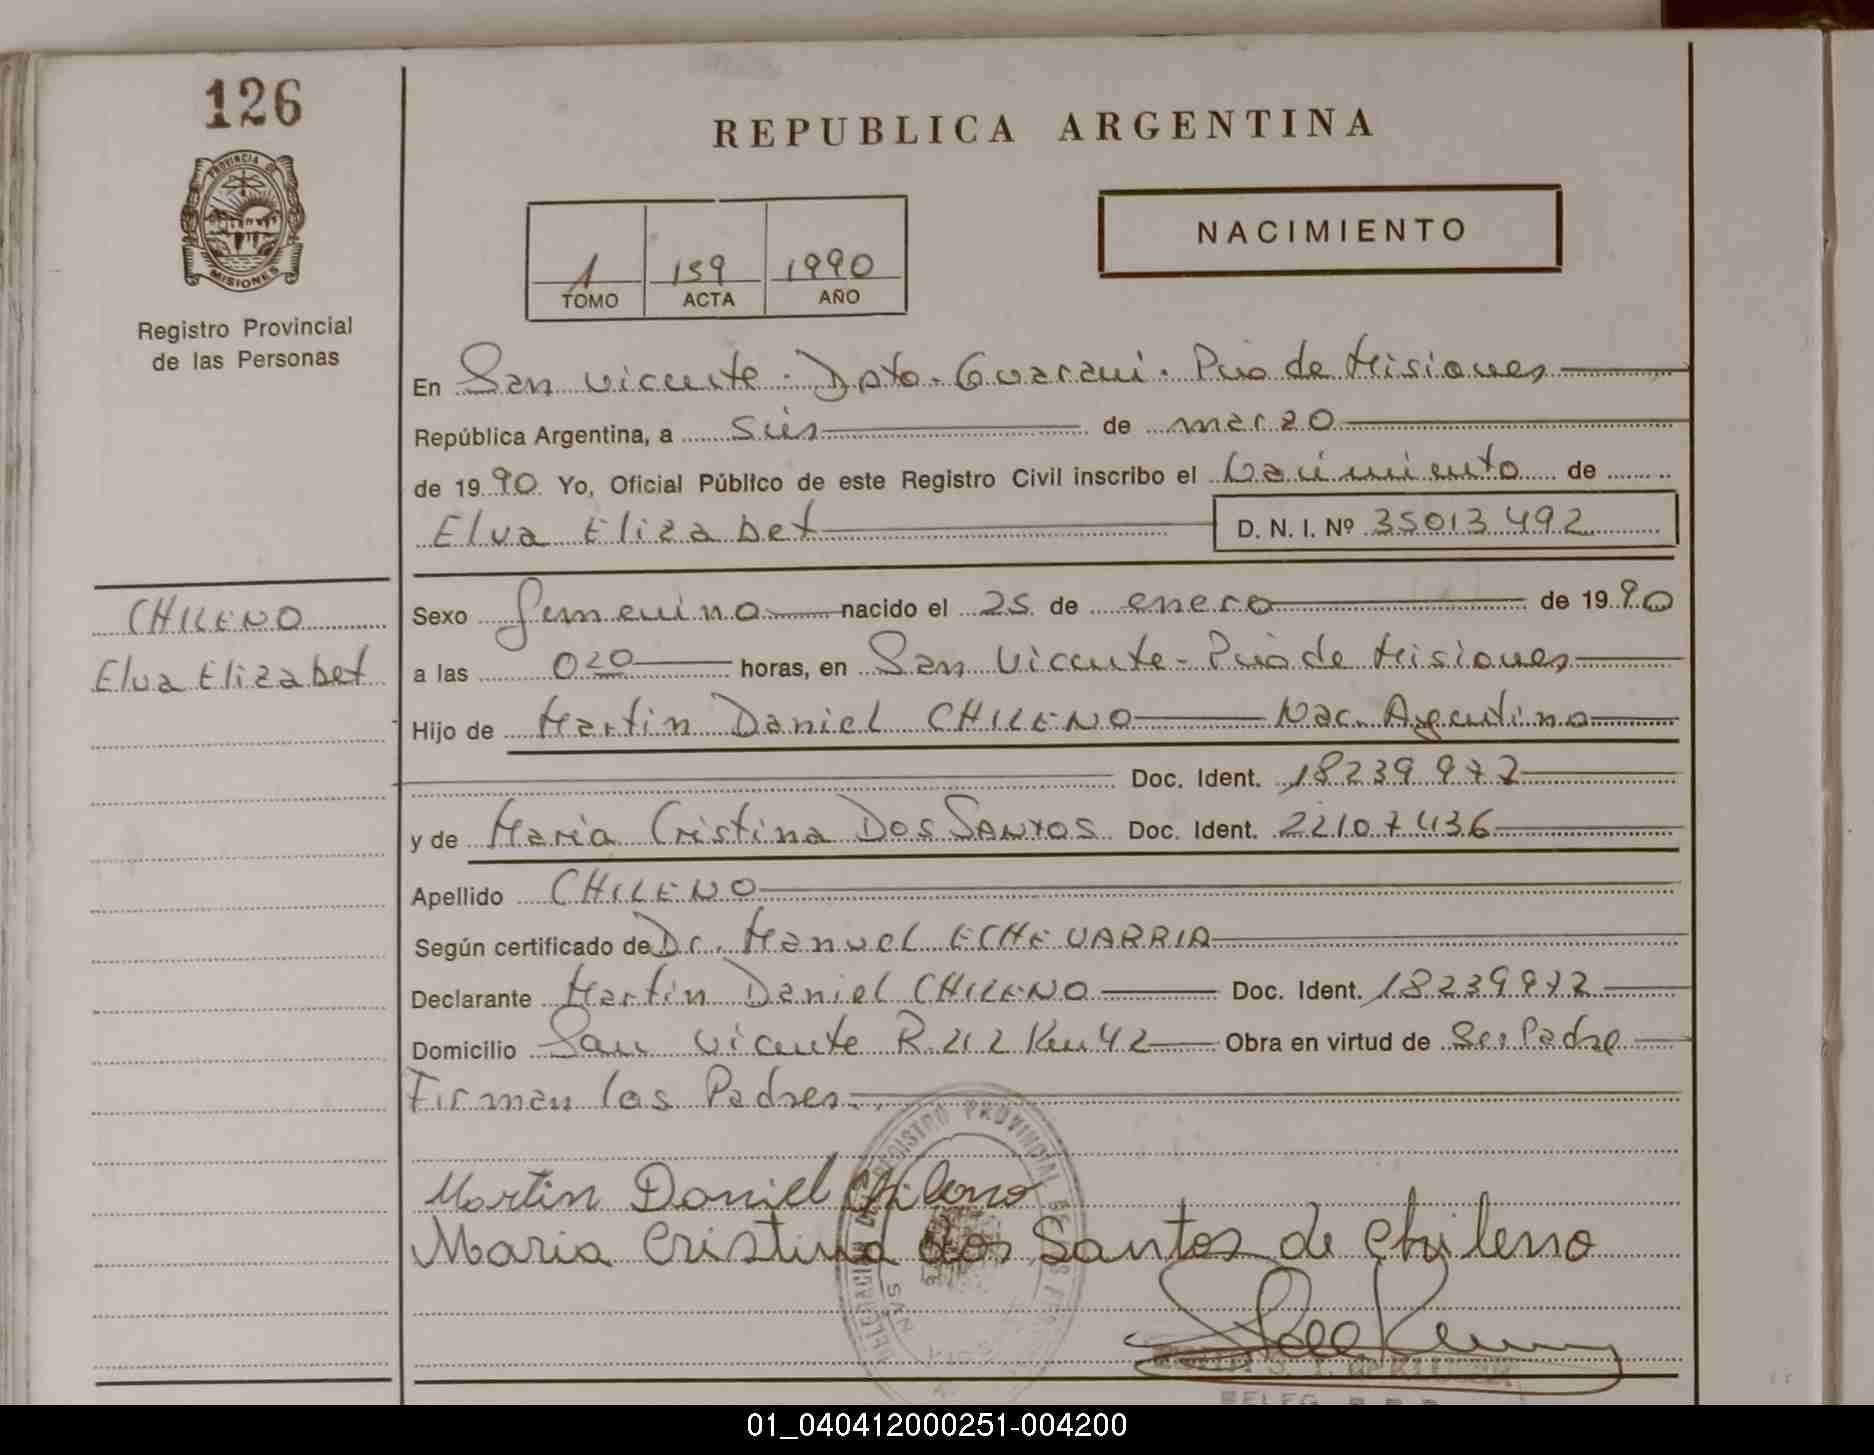 126
PROVINCIA DE
MISIONES
Registro Provincial
de las Personas
REPUBLICA ARGENTINA
1 159 1990
TOMO ACTA AÑO
NACIMIENTO
En San Vicente. Dpto. Guarani. Pcia de Misiones
República Argentina, a seis de marzo
de 1990 Yo, Oficial Público de este Registro Civil inscribo el Nacimiento de
Elva Elizabet D. N. I. Nº 35013492
CHILENO
Elva Elizabet
Sexo femenino nacido el 25 de enero de 1990
a las 0²⁰ horas, en San Vicente - Pcia de Misiones
Hijo de Martin Daniel CHILENO Nac. Argentino
Doc. Ident. 18239972
y de Maria Cristina DOS SANTOS Doc. Ident. 22107436
Apellido CHILENO
Según certificado de Dr. Manuel ECHEVARRIA
Declarante Martin Daniel CHILENO Doc. Ident. 18239972
Domicilio San Vicente R. 212 Km 42 Obra en virtud de Ser Padre
Firman los Padres.
Martin Daniel Chileno
Maria Cristina dos Santos de Chileno
DELEGACION DEL REGISTRO PROVINCIAL DE LAS
SAN
DELEG.
01_040412000251-004200